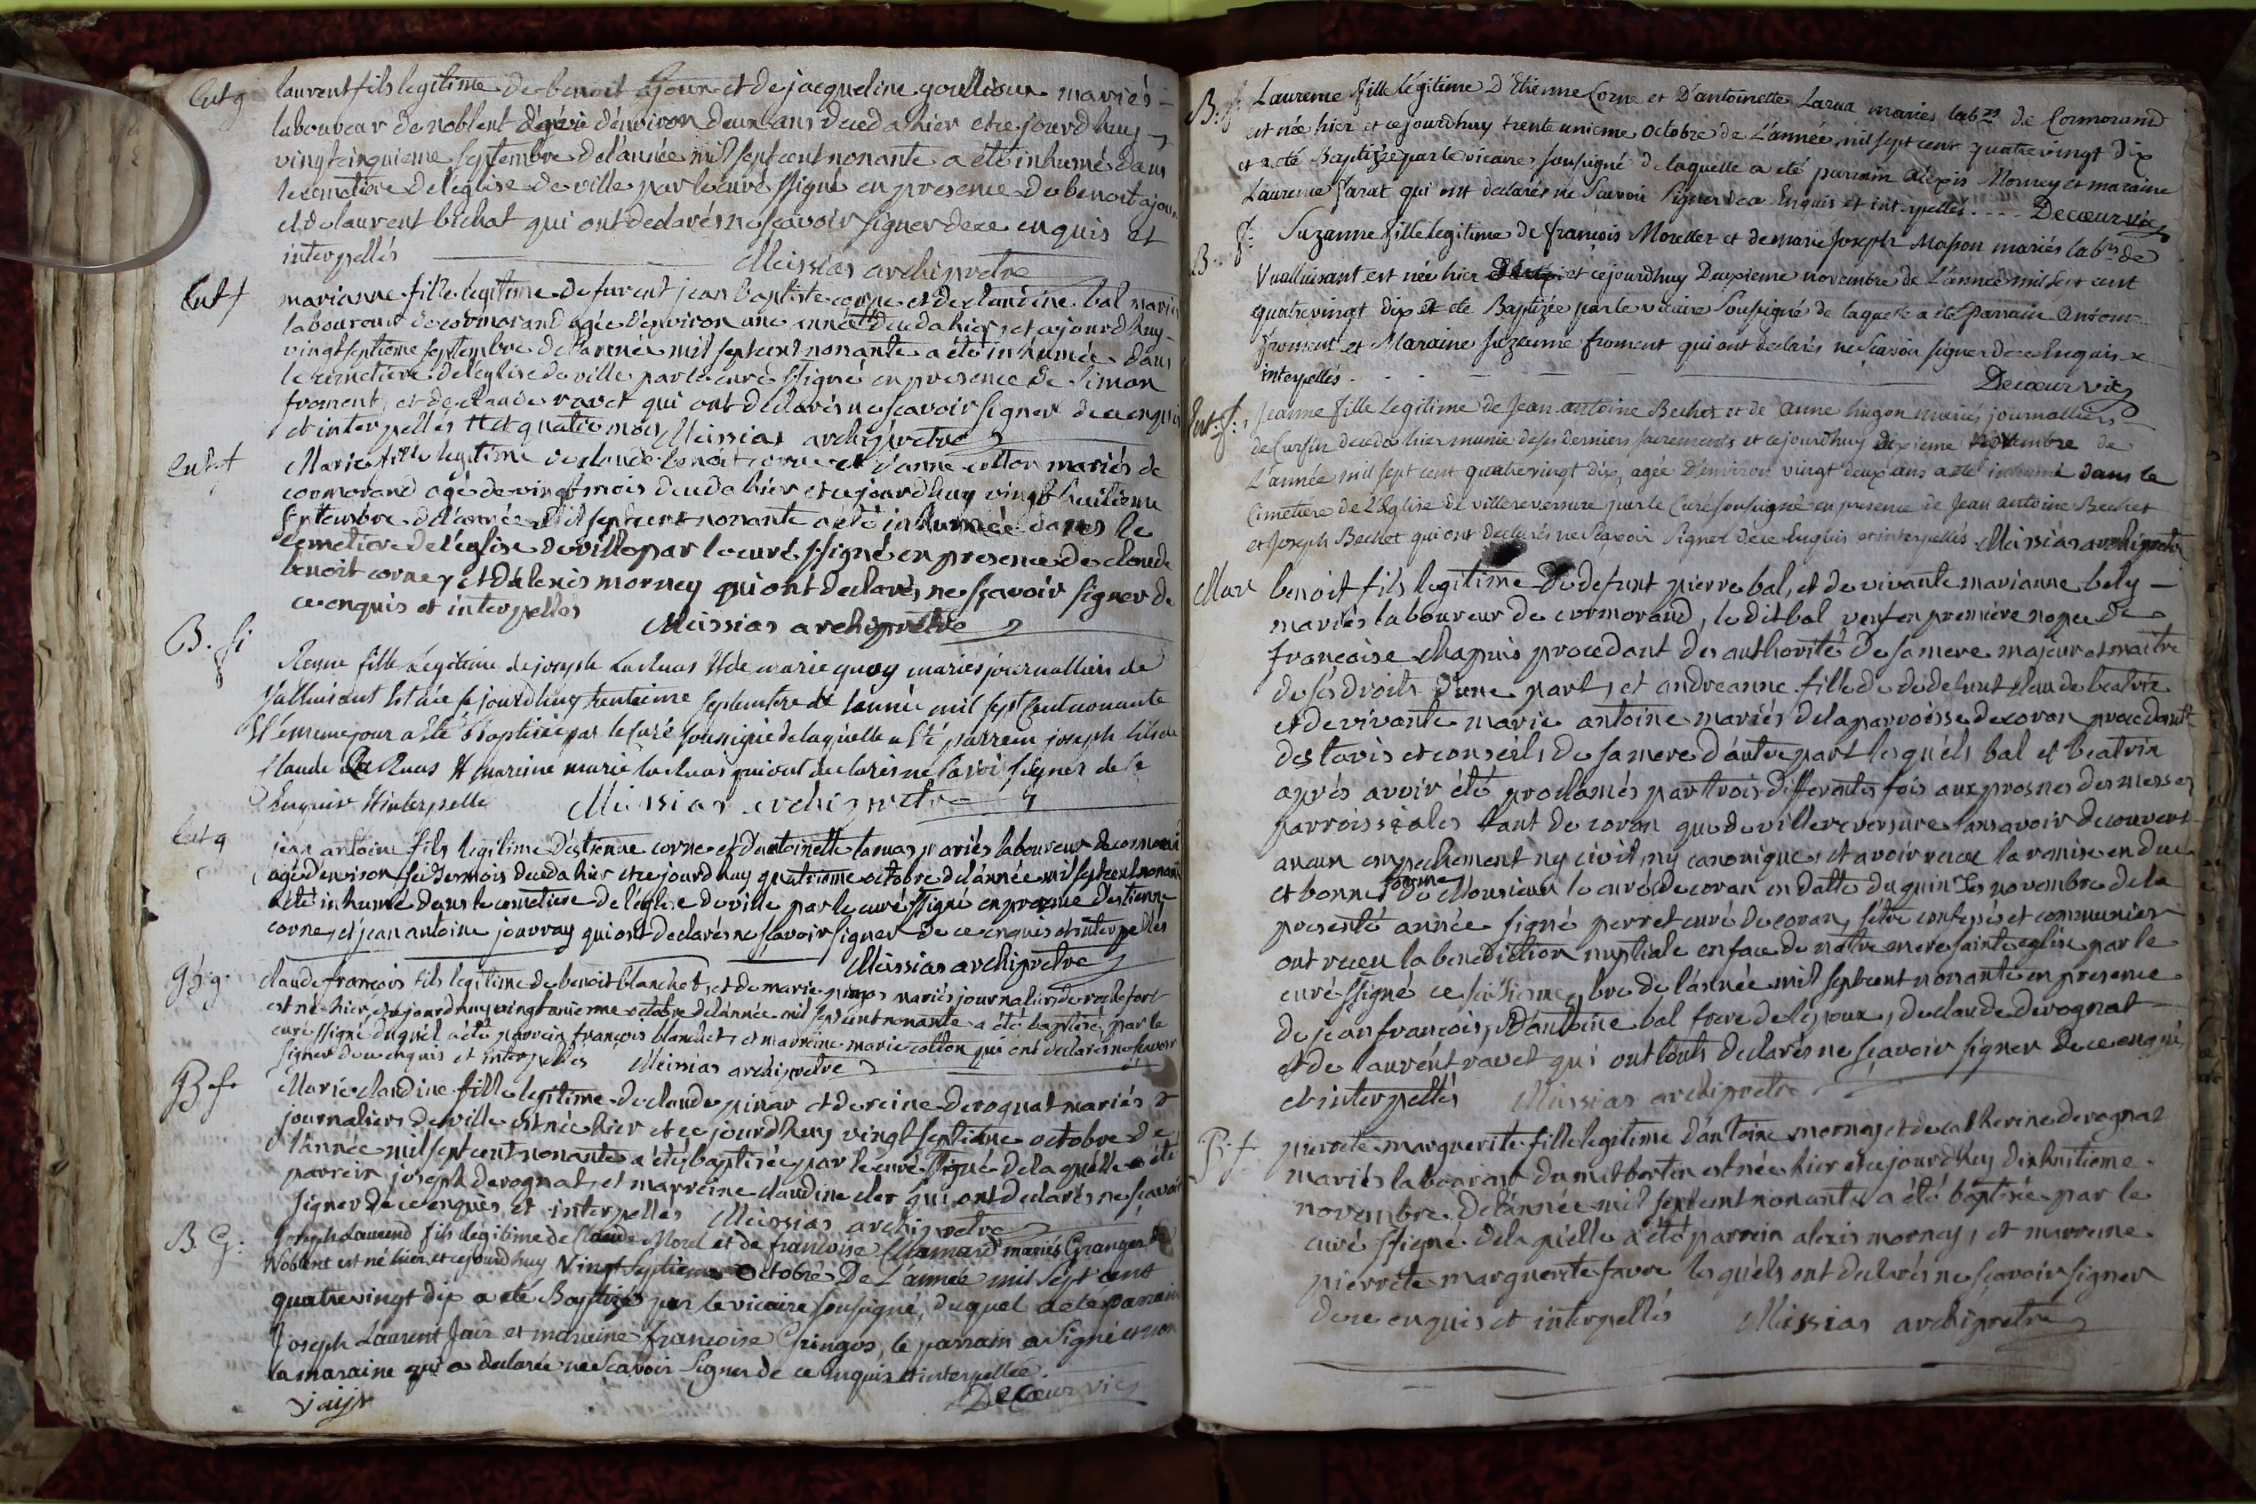 Ent g laurent fils legitime de benoit ajoux et de jacqueline goullioux mariés
laboureur de noblent agé d'environ deux ans decedahier et cejourdhuy
vingtcinquieme septembre del'année mil sept cent nonante a été inhumé dans
le cemetiere del'eglise de ville par le curé ssigné en presence de benoit ajoux
et de laurent bichat qui ont declarés ne sçavoir signer de ce enquis et
interpellés Meissias archiprètre
Ent f marianne fille legitime de furent jean baptiste corne et de claudine bal mariés
laboureur de cormorand agée d'environ une année # decedahier, et ajourdhuy
vingtseptieme septembre del'année mil sept cent nonante a été inhumée dans
le cemetiere del'eglise de ville par le curé ssigné en presence de Simon
froment, et de claude ravet qui ont declarés ne scavoir signer de ce enquis
et interpellés # et quatre mois Meissias archiprètre
Ent f Marie fille legitime de claude benoit corne et d'anne cotton mariés de
cormorand agé de vingt mois decedahier et cejourdhuy vingt huitieme
septembre del'année mil sept cent nonante a été inhumée dans le
cemetiere del'eglise de ville par le curé ssigné en presence de claude
benoit corne, et d'alexis mornay qui ont declarés ne sçavoir signer de
ce enquis et interpellés Meissias archiprètre
B. f Reyne fille Legitime de joseph La Ruas et de marie quoy mariés journalliers de
Valluisant est née ce jourdhuy trentieme Septembre de lannée mil sept Cent nonante
Et le meme jour a été Baptisée par le Curé Soussigné de laquelle a Eté parrein joseph fils de
Claude La Ruas et mareine marie la Ruas qui ont declarés ne Savoir Signer de Ce
Enquis et interpellés Meissias archiprètre
Ent g jean antoine fils legitime d'estienne corne et d'antoinette laruas mariés laboureur de cormorand
agé d'environ seize mois decedahier et cejourdhuy quatrieme octobre del'année mil sept cent nonante
a été inhumé dans le cemetiere de l'église de ville par le curé ssigné en presence d'estienne
corne, et jean antoine jouvray qui ont declarés ne sçavoir signer de ce enquis et interpellés
Meissias archiprètre
B. g. claude francois fils legitime de benoit blanchet, et de marie pingos mariés journaliers de rochefort
est né hier, et cejourdhuy vingt unieme octobre del'année mil sept cent nonante a été baptisé par le
curé ssigné duquel a été parrein françois blanchet, et marreine marie cotton qui ont declarés ne scavoir
signer de ce enquis et interpellés Meissias archiprètre
B f. Marie claudine fille legitime de claude pinar et de reine derognat mariés
journaliers de ville est née hier et ce jourdhuy vingt septieme octobre de
l'année mil sept cent nonante a été baptisée par le curé ssigné de laquelle a été
parrein joseph derognat, et marreine claudine cler qui ont declarés ne sçavoir
signer de ce enquis, et interpellés Meissias archiprètre
B. G: Joseph Laurend fils légitime de Claude Morel et de francoise mariés Granger de
Noblent est né hier, et cejourdhuy Vingt Septieme Octobre De L'année mil Sept cent
quatre vingt dix a été Baptizé par le vicaire soussigné, duquel a été parrain
Joseph Laurent Jair et maraine francoise Pingos, le parrain a signé et non
la maraine qui a declarée ne scavoir Signer de ce enquis et interpellée.
De Cœur vic
B. f. Laurence fille légitime D'Etienne Corne et D'antoinette Larua mariés labrs de Cormorand
est née hier et cejourdhuy trente unieme octobre de L'année mil sept cent quatre vingt dix
et a été Baptizée par le vicaire soussigné de laquelle a été parrain Alexis Mornay et maraine
Laurence Jarat qui ont declarés ne Scavoir Signer de ce Enquis et interpellés.... Decœur vic
B. f: Suzanne fille legitime de françois Morellet et de marie joseph Masson mariés labrs de
Vualluisant est née hier et cejourdhuy Deuxieme novembre de L'année mil sept cent
quatre vingt dix et été Baptizée par le vicaire soussigné de laquelle a été parrain antoine
froment et Maraine Suzanne froment qui ont declarés ne Scavoir signer de ce Enquis et
interpellés. Decœur vic
Ent: f: Jeanne fille legitime de Jean antoine Bechet et de anne hugon mariés journalliers
de Cursin decedahier munie de ses derniers sacrements et cejourdhuy dixieme novembre de
L'année mil sept cent quatre vingt dix, agée D'environ vingt deux ans a été inhumé dans le
Cimetière de L'Eglise de villereversure par le Curé soussigné en presence de Jean antoine Bechet
et Joseph Bechet qui ont declarés ne Scavoir Signer de ce Enquis et interpellés Meissias archiprètre
Mar benoit fils legitime de defunt pierre bal, et de vivante marianne bely
mariés laboureur de cormorand, le dit bal veuf en premiere nopce de
françoise chapuis procedant de l'authorité de sa mere majeur et maitre
de ses droits d'une part, et andreanne fille de dedefunt claude beatrix
et de vivante marie antoine mariés de la parroisse de coran procedant
des l'avis et conseils de sa mere d'autre part lesquels bal et beatrix
aprés avoir été proclamés par trois differentes fois aux prosnes des messes
parroissiales tant de coran que de villereversure sans avoir decouvert
aucun empechement ny civil, ny canonique, et avoir receu la remise en due
et bonne forme de Monsieur le curé de coran en datte du quinze novembre de la
presente année signé perret curé de coran, s'etre confessés et communiés
ont receu la benediction nuptiale en face de notre mere sainte eglise par le
curé ssigné ce seizieme bre de l'année mil sept cent nonante en presence
de jean françois, d'antoine bal frere de lepoux, de claude derognat
et de laurent ravet qui ont touts declarés ne sçavoir signer de ce enquis
et interpellés Meissias archiprètre
B. f. pierrete marguerite fille legitime d'antoine mornay et de catherine derognat
mariés laboureur du mas bertin est née hier et cejourdhuy dixhuitieme
novembre del'année mil sept cent nonante a été baptisée par le
curé ssigné de laquelle a été parrein alexis mornay, et marreine
pierrete marguerite favre lesquels ont declarés ne sçavoir signer
de ce enquis et interpellés Meissias archiprètre